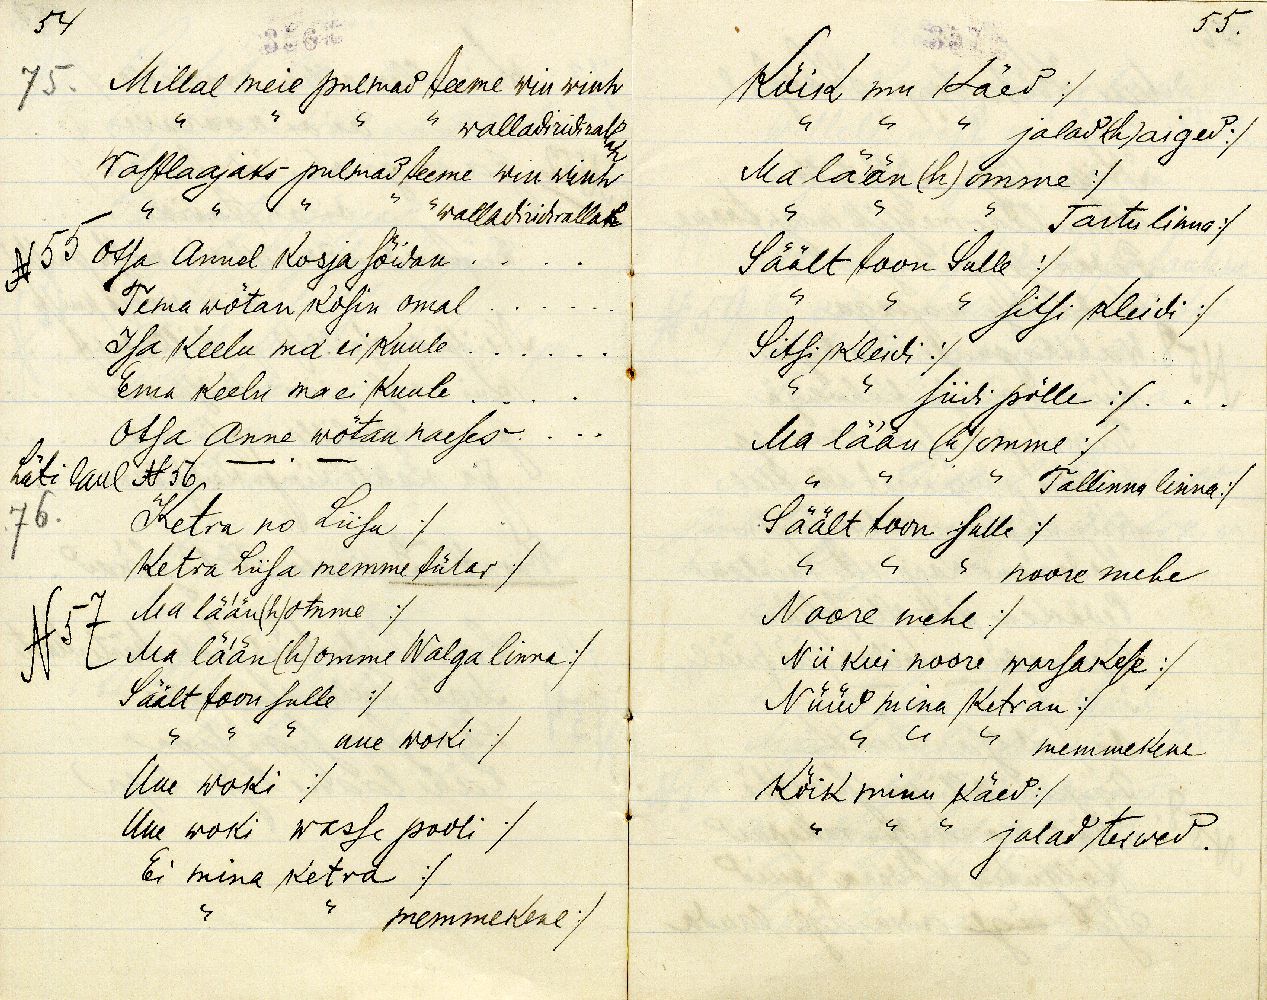 54
75. Millal meie pulmad teeme win winh
" " " " walladiridirallah
Wastlaajaks pulmad teeme win winh
" " " " walladiridirallah
№ 55 Otsa Annel kosja sõidan . . . .
Tema wõtan kosin omal . . . . .
Isa keelu ma ei kuule . . . . . .
Ema keelu ma ei kuule . . . .
Otsa Anne wõtan naeses . . . .
Läti laul № 56
76. Ketra no Liisa :/
Ketra Liisa memme tütar :/
№ 57 Ma lään(h)omme :/
Ma lään(h)omme Walga linna :/
Säält toon sulle :/
" " " uue woki :/
Uue woki :/
Uue woki wasse pooli :/
Ei mina ketra :/
" " memmekene :/
55.
Kõik mu käed :/
" " " jalad(h)aiged :/
Ma lään (h)omme :/
" " " Tartu linna :/
Säält toon Sulle :/
" " " sitsi kleidi :/
Sitsi kleidi :/
" " siidi põlle :/ . . .
Ma lään (h)omme :/
" " " Tallinna linna :/
Säält toon sulle :/
" " " noore mehe
Noore mehe :/
Nii kui noore warsakese :/
Nüüd mina ketran :/
" " " memmekene
Kõik minu käed :/
" " " jalad terwed.